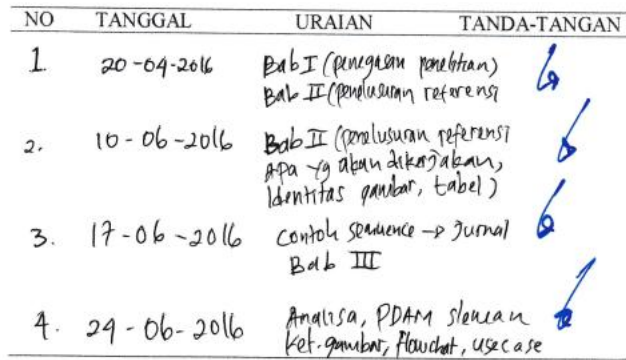 NO TANGGAL URAIAN TANDA-TANGAN
1. 20-04-2016 Bab I (penegasan penelitian)
Bab II (penelusuran referensi
2. 10-06-2016 Bab II (penelusuran referensi
apa yg akan dikerjakan,
Identitas gambar, tabel)
3. 17-06-2016 contoh sequence → Jurnal
Bab III
4. 24-06-2016 Analisa, PDAM sleman
ket. gambar, flowchat, usecase